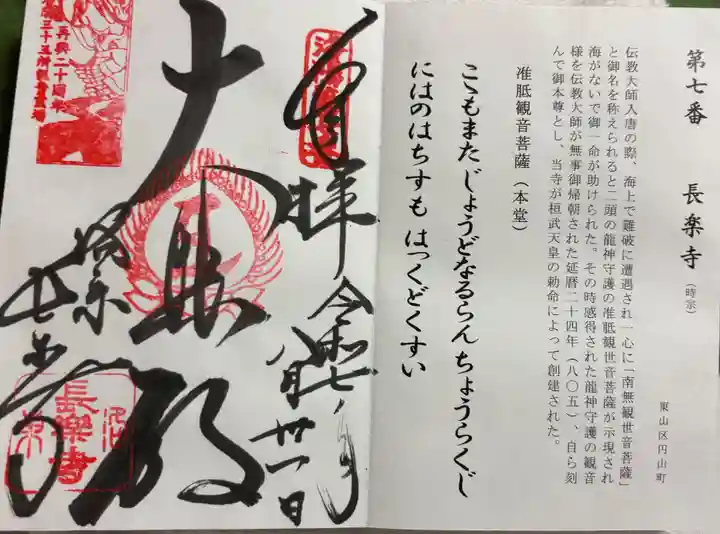 第七番 長楽寺（時宗）
東山区円山町
伝教大師入唐の際、海上で難破に遭遇され一心に「南無観世音菩薩」
と御名を称えられると二頭の龍神守護の准胝観世音菩薩が示現され
海がないで御一命が助けられた。その時感得された龍神守護の観音
様を伝教大師が無事御帰朝された延暦二十四年（八〇五）、自ら刻
んで御本尊とし、当寺が桓武天皇の勅命によって創建された。
准胝観音菩薩（本堂）
こゝもまたじょうどなるらん ちょうらくじ
にはのはちすも はっくどくすい
奉拝
令和七年
八月卅一日
大悲殿
長楽寺
再興二十周年
長樂寺